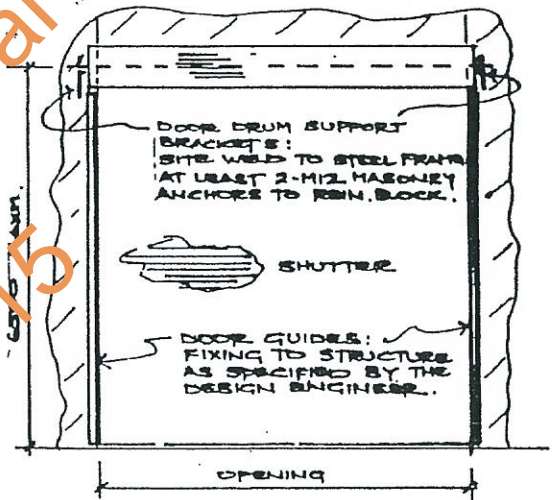 DOOR DRUM SUPPORT
BRACKETS:
SITE WELD TO STEEL FRAME
AT LEAST 2-M12 MASONRY
ANCHORS TO REIN. BLOCK.
SHUTTER
DOOR GUIDES:
FIXING TO STRUCTURE
AS SPECIFIED BY THE
DESIGN ENGINEER.
OPENING
15